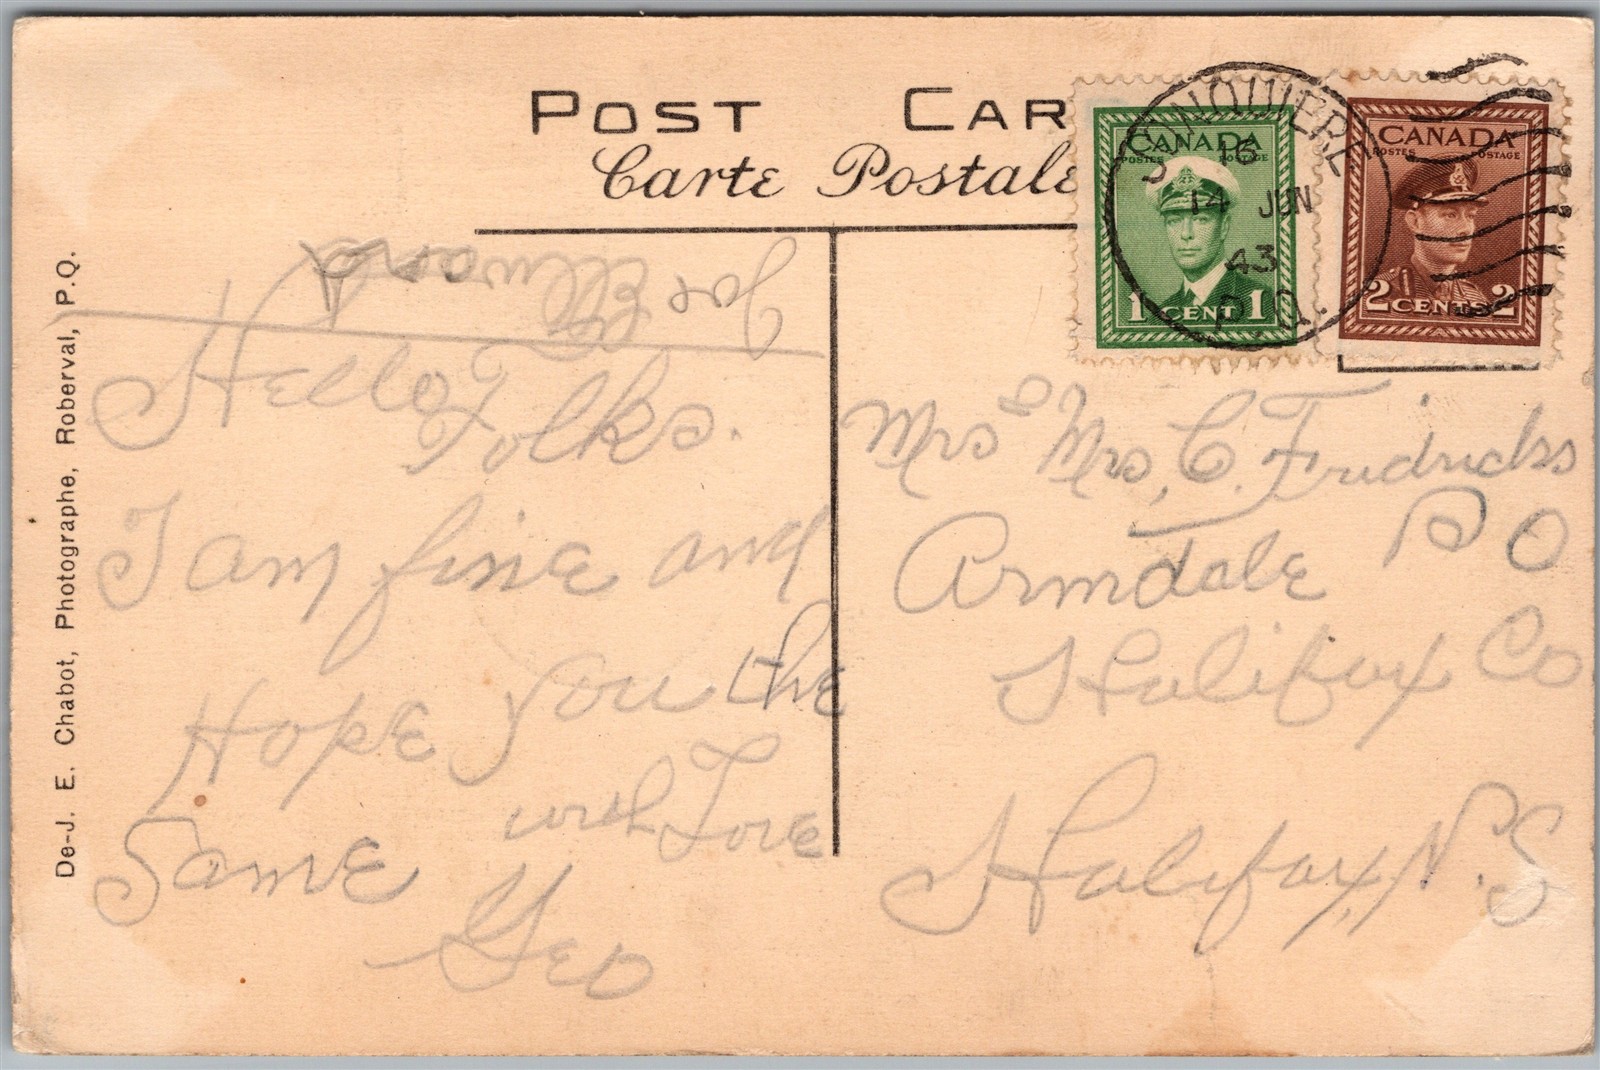 POST CAR
Carte Postale
CANADA
POSTES POSTAGE
1 CENT 1
CANADA
POSTES POSTAGE
2 CENTS 2
JONQUIERE
15
14 JUN
43
P.Q.
De-J. E. Chabot, Photographe, Roberval, P.Q.
Ellwand
Hello
Folks.
I am fine and
Hope you the
Same with Love
Geo
Mrs & Mrs, C. Fredricks
Armdale P O
Halifax Co
Halifax, N.S